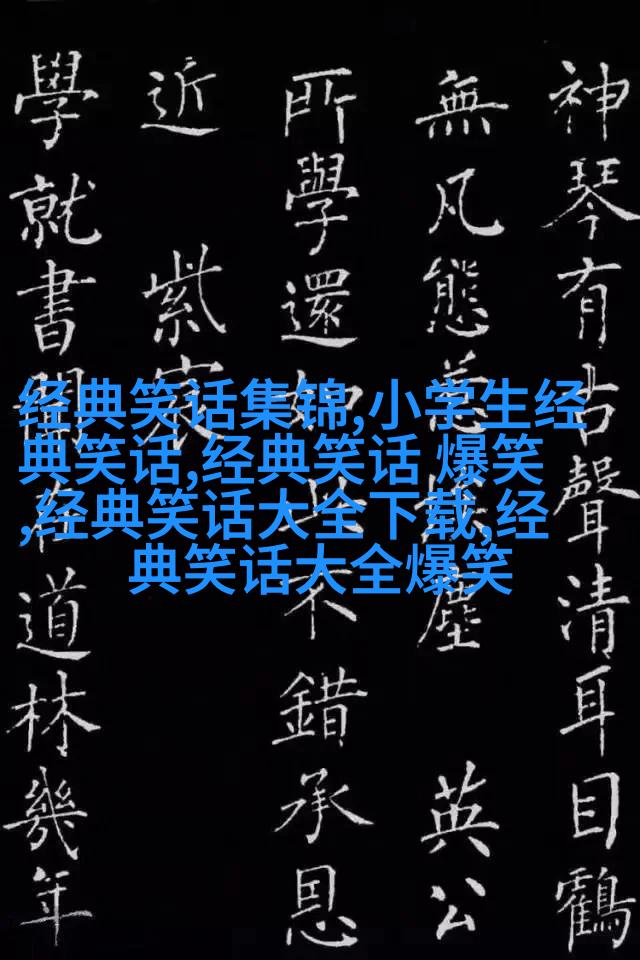 神琴有古聲清耳目鶴
無凡態塵 英公
所學還如此不錯承恩
近 紫宸
學就書道林幾年
经典笑话集锦,小学生经
典笑话,经典笑话 爆笑
,经典笑话大全下载,经
典笑话大全爆笑